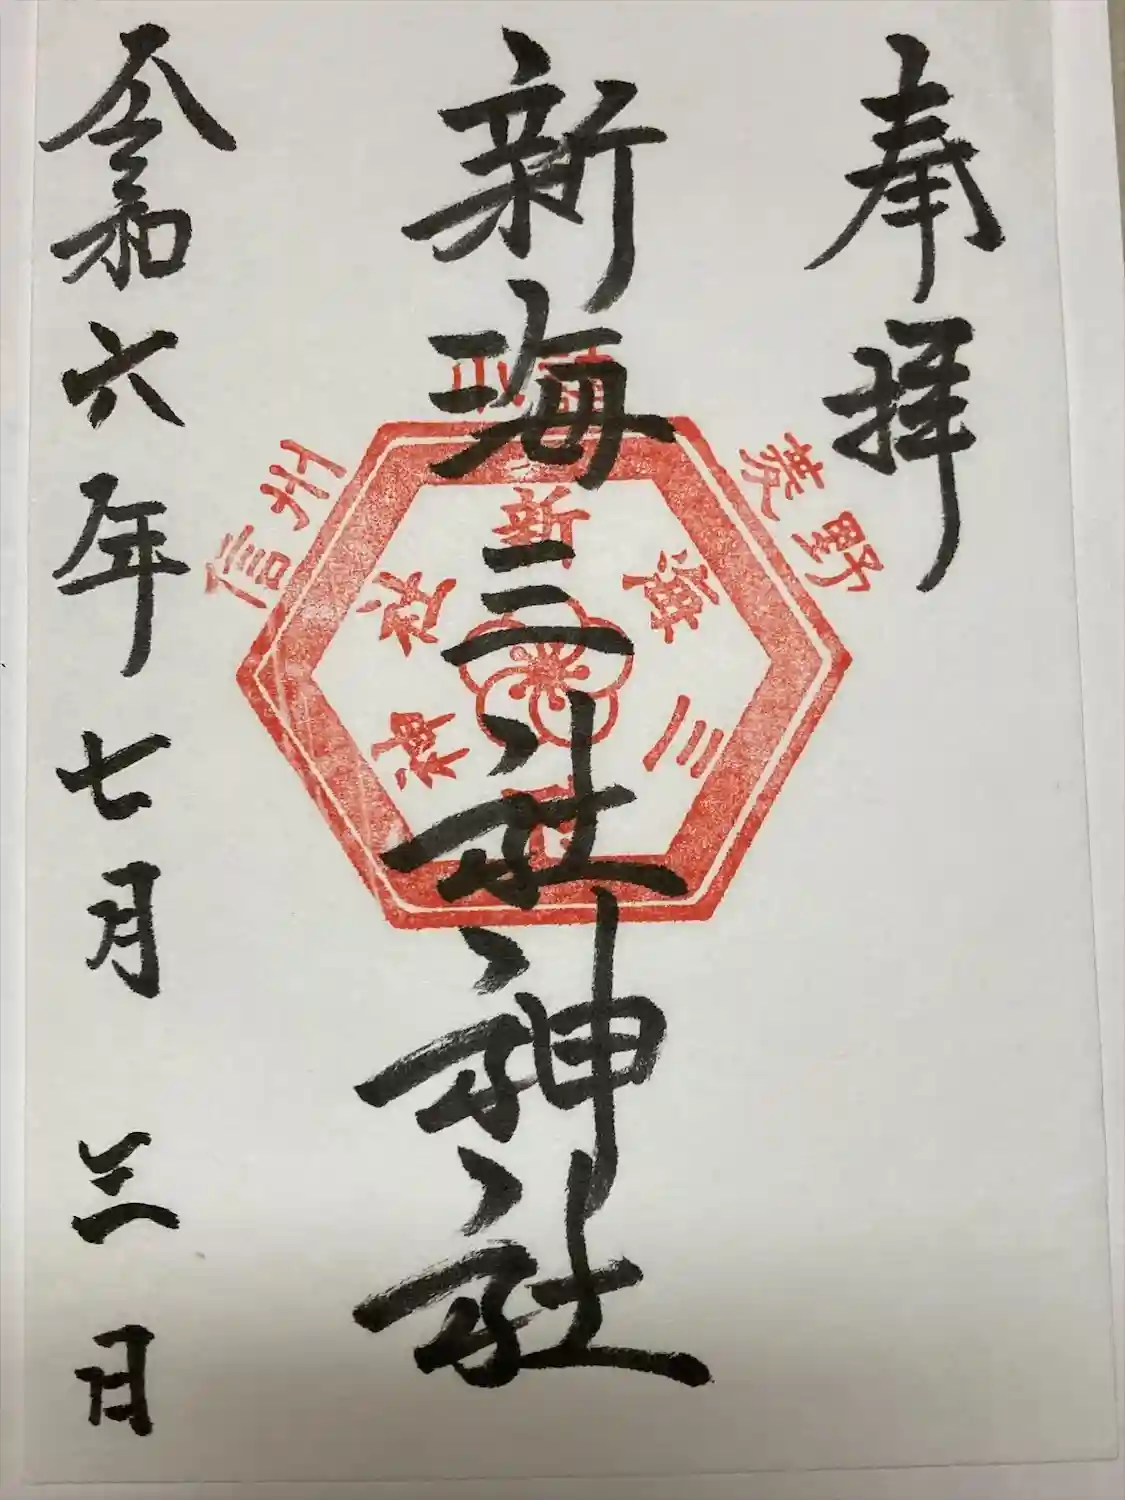 奉拝
新海三社神社
令和六年七月三日
信州
菱野
新海三社神社